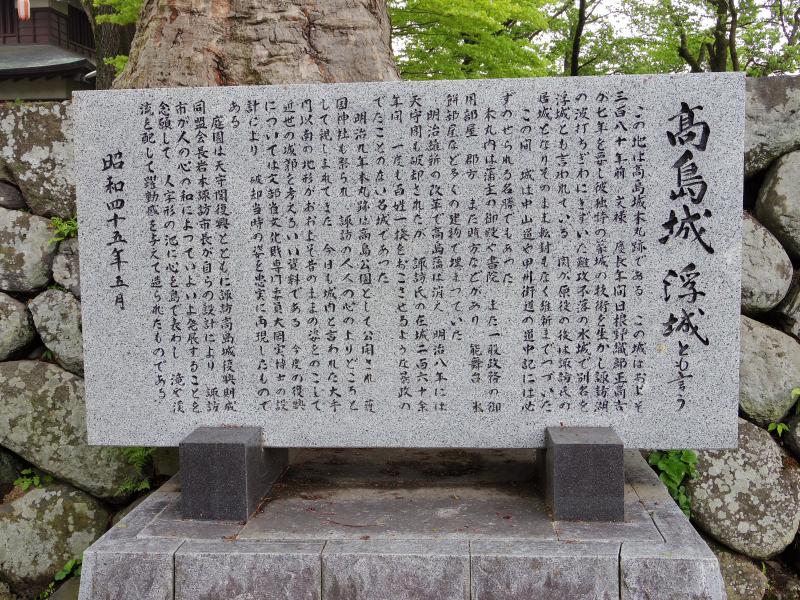 高島城 浮城とも言う
この地は高島城本丸跡である この城はおよそ
三百八十年前 文禄 慶長年間日根野織部正高吉
が七年を要し彼独特の築城の技術を生かし諏訪湖
の波打ちぎわにきずいた難攻不落の水城で別名を
浮城とも言われている 関が原役の後は諏訪氏の
居城となりそのまま転封もなく維新までつづいた
この間 城は中山道や甲州街道の道中記には必
ずのせられる名勝でもあった
本丸内は藩主の御殿や書院 また一般政務の御
用部屋 郡方 また賄方などがあり 能舞台 氷
餅部屋など多くの建物で埋まっていた
明治維新の改革で高島藩は消え 明治八年には
天守閣も破却されたが 諏訪氏の在城二百六十余
年間 一度も百姓一揆をおこさせるような悪政の
でたことのない名城であった
明治九年本丸跡は高島公園として公開され 護
国神社も祭られ 諏訪の人々の心のよりどころと
して親しまれてきた 今日も城内と言われた大手
門以南の地形がおおよそ昔のままの姿をのこして
近世の城郭を考えるいい資料である 今度の復興
については文部省文化財専門委員大岡実博士の設
計により 破却当時の姿を忠実に再現したもので
ある
庭園は天守閣復興とともに諏訪高島城復興期成
同盟会長岩本諏訪市長が自らの設計により 諏訪
市が人の心の和によっていよいよ発展することを
念願して 人字形の池に心を島で表わし 滝や渓
流を配して躍動感を与えて造られたものである
昭和四十五年五月